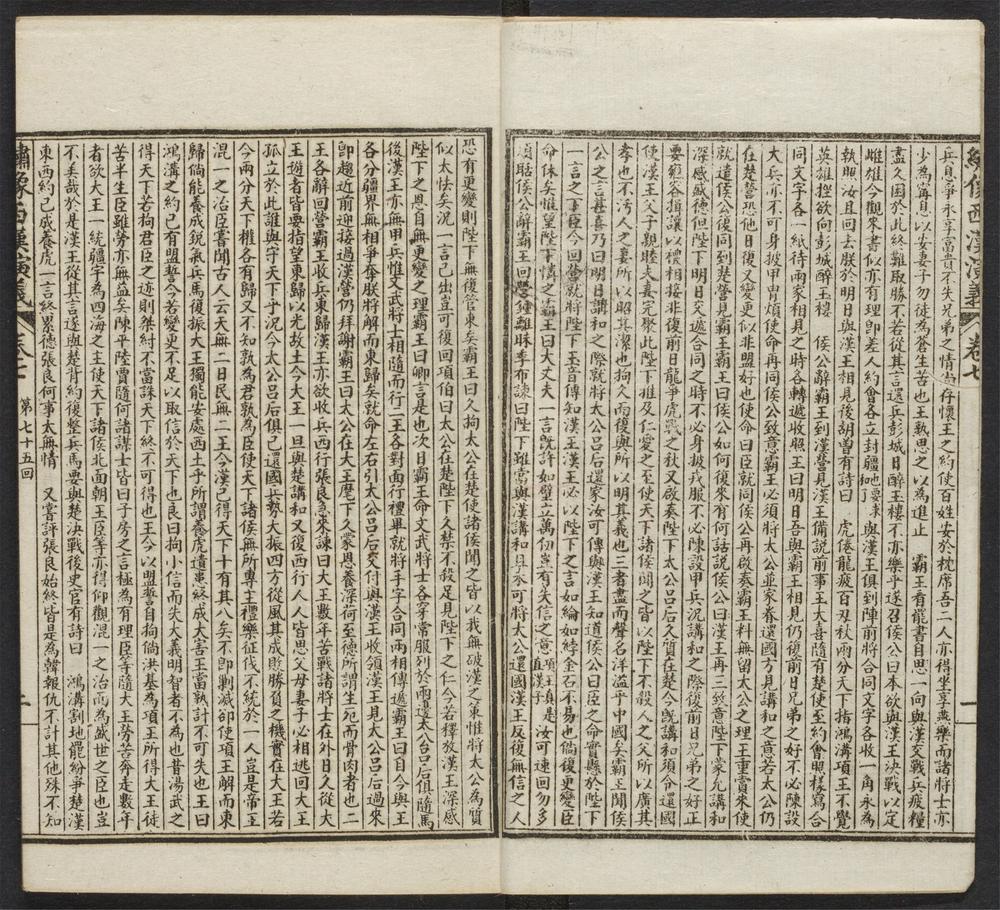 兵息爭永享富貴不失兄弟之情尚存懷王之約使百姓安於枕席吾二人亦得坐享燕樂而諸將士亦
少為寗息以安妻子勿徒為蒼生苦也王執思之以為進止　霸王看罷書自思一向與漢交戰兵疲糧
盡久困於此終難取勝不若從其言還兵彭城日醉玉樓不亦樂乎遂召侯公曰本欲與漢王決戰以定
雌雄今觀來書似亦有理即差人約會各立封疆地理來與漢王俱到陣前將合同文字各收一角永為
執照汝且回去朕於明日與漢王相見後胡曾有詩曰　虎倦龍疲百刃秋兩分天下指鴻溝項王不覺
英雄挫欲向彭城醉玉樓　侯公辭霸王到漢營見漢王備説前事王大喜隨有楚使至約會照樣寫合
同文字各一紙待兩家相見之時各轉遞收照王曰明日吾與霸王相見仍復前日兄弟之好不必陳設
大兵亦不可身披甲冑煩使命再同侯公致意霸王必須將太公並家眷還國方見講和之意若太公仍
在楚營恐他日後又變更似非盟好也使命曰臣就同侯公再啟奏霸王料無留太公之理王重賞來使
就遣侯公復同到楚營見霸王霸王曰侯公如何復來有何話説侯公曰漢王再三致意陛下蒙允講和
深感威德但陛下明日交遞合同之時不必身披戎服不必陳設甲兵況講和之際復前日兄弟之好正
要雍容揖讓以禮相接非復前日龍爭虎戰之秋又啟奏陛下太公呂后久質在楚今既講和須令還國
使漢王父子親睦夫妻完聚此陛下推及仁愛之至使天下諸侯聞之皆以陛下不殺人之父所以廣其
孝也不污人之妻所以昭其潔也拘久而復與所以明其義也三者盡而聲名洋溢乎中國矣霸王聞侯
公之言甚喜乃曰明日講和之際就將太公呂后還家汝可傳與漢王知道侯公曰臣之命實懸於陛下
一言之下臣今回營就將陛下玉音傳知漢王漢王必以陛下之言如綸如綍金石不易也倘復更變臣
命休矣惟望陛下憐之霸王曰大丈夫一言既許如壁立萬仞豈有失信之意項王真是直漢子汝可速回勿多
煩聒侯公辭霸王回營鍾離眜季布諫曰陛下雖當與漢講和且未可將太公還國漢王反復無信之人
繡像西漢演義　卷七　一
恐有更變則陛下無復管束矣霸王曰久拘太公在楚使諸侯聞之皆以我無破漢之策惟將太公為質
似太怯矣況一言己出豈可復回項伯曰太公在楚陛下久禁不殺足見陛下之仁今若釋放漢王深感
陛下之恩自無更變之理霸王曰卿言是也次日霸王命文武將士各穿常服列於兩邊太公呂后俱隨馬
後漢王亦無甲兵惟文武將士相隨而行二王各對面行禮畢就將手字合同兩相傳遞霸王曰自今與王
各分疆界無相爭奪朕將解而東歸矣就命左右引太公呂后交付與漢王收領漢王見太公呂后過來
即趨近前迎接過漢營仍拜謝霸王曰太公在大王麾下久蒙恩養深荷至德所謂生死而骨肉者也二
王各辭回營霸王收兵東歸漢王亦欲收兵西行張良急來諫曰大王數年苦戰諸將士在外日久從大
王遊者皆要指望東歸以光故土今大王一旦與楚講和又復西行人人皆思父母妻子必相逃回大王
孤立於此誰與守天下乎況今太公呂后俱已還國兵勢大振四方從風其成敗勝負之機實在大王若
今兩分天下權各有歸又不知孰為君孰為臣使天下諸侯無所專主禮樂征伐不統於一人豈是帝王
混一之治臣嘗聞古人云天無二日民無二王今漢已得天下十有其八矣不即剿滅卻使項王解而東
歸倘能養成銳氣兵馬復振大王獨能安處西土乎所謂養虎遺患終成大害王當熟計不可失也王曰
鴻溝之約已有盟誓今若變更不足以取信於天下也良曰拘小信而失大義明智者不為也昔湯武之
得天下若拘君臣之迹則桀紂不當誅天下終不可得也王今以盟誓自拘倘洪基為項王所得大王徒
苦半生臣雖勞亦無益矣陳平陸賈隨何諸謀士皆曰子房之言極為有理臣等隨大王勞苦奔走數年
者欲大王一統疆宇為四海之主使天下諸侯北面朝王臣等亦得仰觀混一之治而為盛世之臣也豈
不美哉於是漢王從其言遂與楚背約復整兵馬要與楚決戰後史官有詩曰　鴻溝割地罷紛爭楚漢
東西約已成養虎一言終累德張良何事太無情　又嘗評張良始終皆是為韓報仇不計其他殊不知
繡像西漢演義　卷七　第七十五回　二